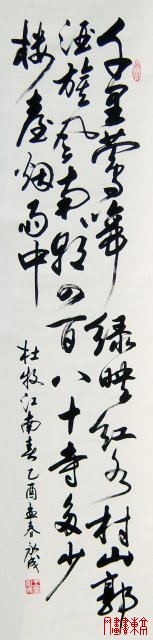 千里鶯啼绿映红水村山郭
酒旗风南朝四百八十寺多少
楼臺烟雨中
杜牧江南春乙酉孟春